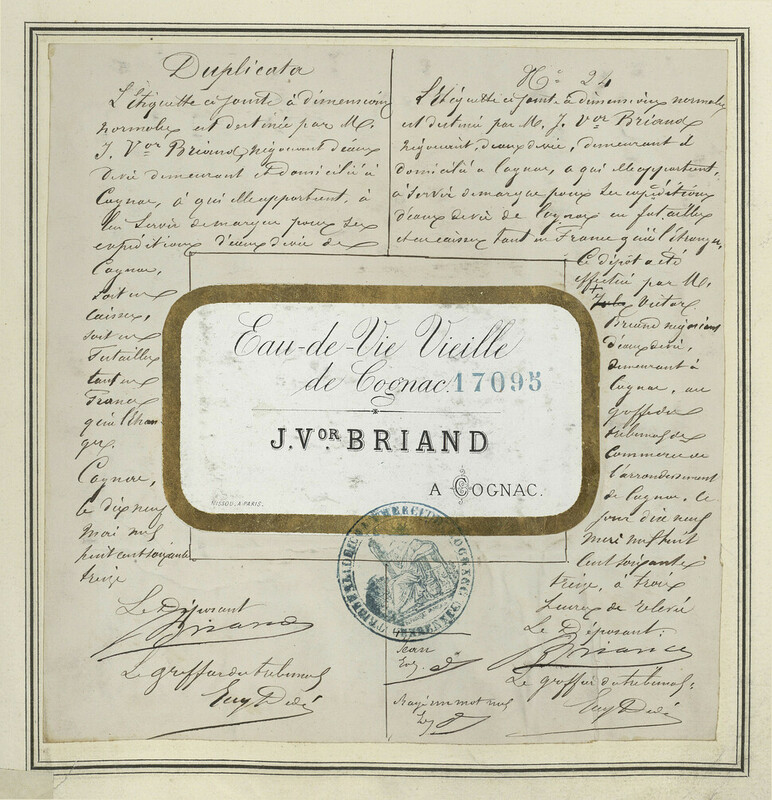 Duplicata
L'étiquette ci jointe à dimensions
normales est destinée par M.
J. Vor Briand, négociant d'eaux
de vie demeurant et domicilié à
Cognac, à qui elle appartient, à
lui servir de marque pour ses
expéditions d'eaux de vie de
Cognac,
soit en
caisses,
soit en
futailles
tant en
France
qu'à l'étran
ger.
Cognac,
le dix neuf
mars mil
huit cent soixante
treize
Le Déposant
Briand
Le greffier du tribunal
No 24
L'étiquette ci jointe à dimensions normales
est destinée par M. J. Vor Briand
négociant, d'eaux de vie, demeurant et
domicilié à Cognac, à qui elle appartient,
à servir de marque pour ses expéditions
d'eaux de vie de Cognac en futailles
et en caisses tant en France qu'à l'étranger.
Ce dépôt a été
effectué par M.
Jules Victor
Briand négociant
d'eaux de vie,
demeurant à
Cognac, au
greffe du
tribunal de
Commerce de
l'arrondissement
de Cognac, le
jour dix neuf
mars mil huit
cent soixante
treize, à trois
heures de relevée
Le Déposant:
Briand
Le greffier du tribunal:
Rayé un mot nul
Eau-de-Vie Vieille
de Cognac.
17095
J. VOR. BRIAND
A COGNAC.